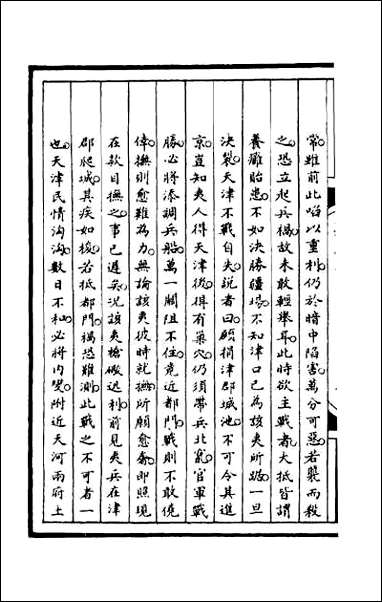 常雖前此啗以重利仍於暗中陷害萬分可惡若襲而殺
之恐立起兵禍故未敢輕舉耳此時欲主戰者大抵皆謂
養癰貽患不如決勝疆場不知津口已為該夷所踞一旦
決裂天津不戰自失說者曰願捐津郡城池不可令其進
京豈知夷人得天津後得有巢穴仍須帶兵北竄官軍戰
勝必將添調兵船萬一闌阻不住竟近都門戰則不敢僥
倖撫則愈難為力無論該夷彼時就撫所願愈奢即照現
在款目撫之事已遲矣況該夷槍礮迅利前見夷兵在津
郡爬城其疾如梭若抵都門禍恐難測此戰之不可者一
也天津民情洶洶數日不和必將內變附近天河兩府土